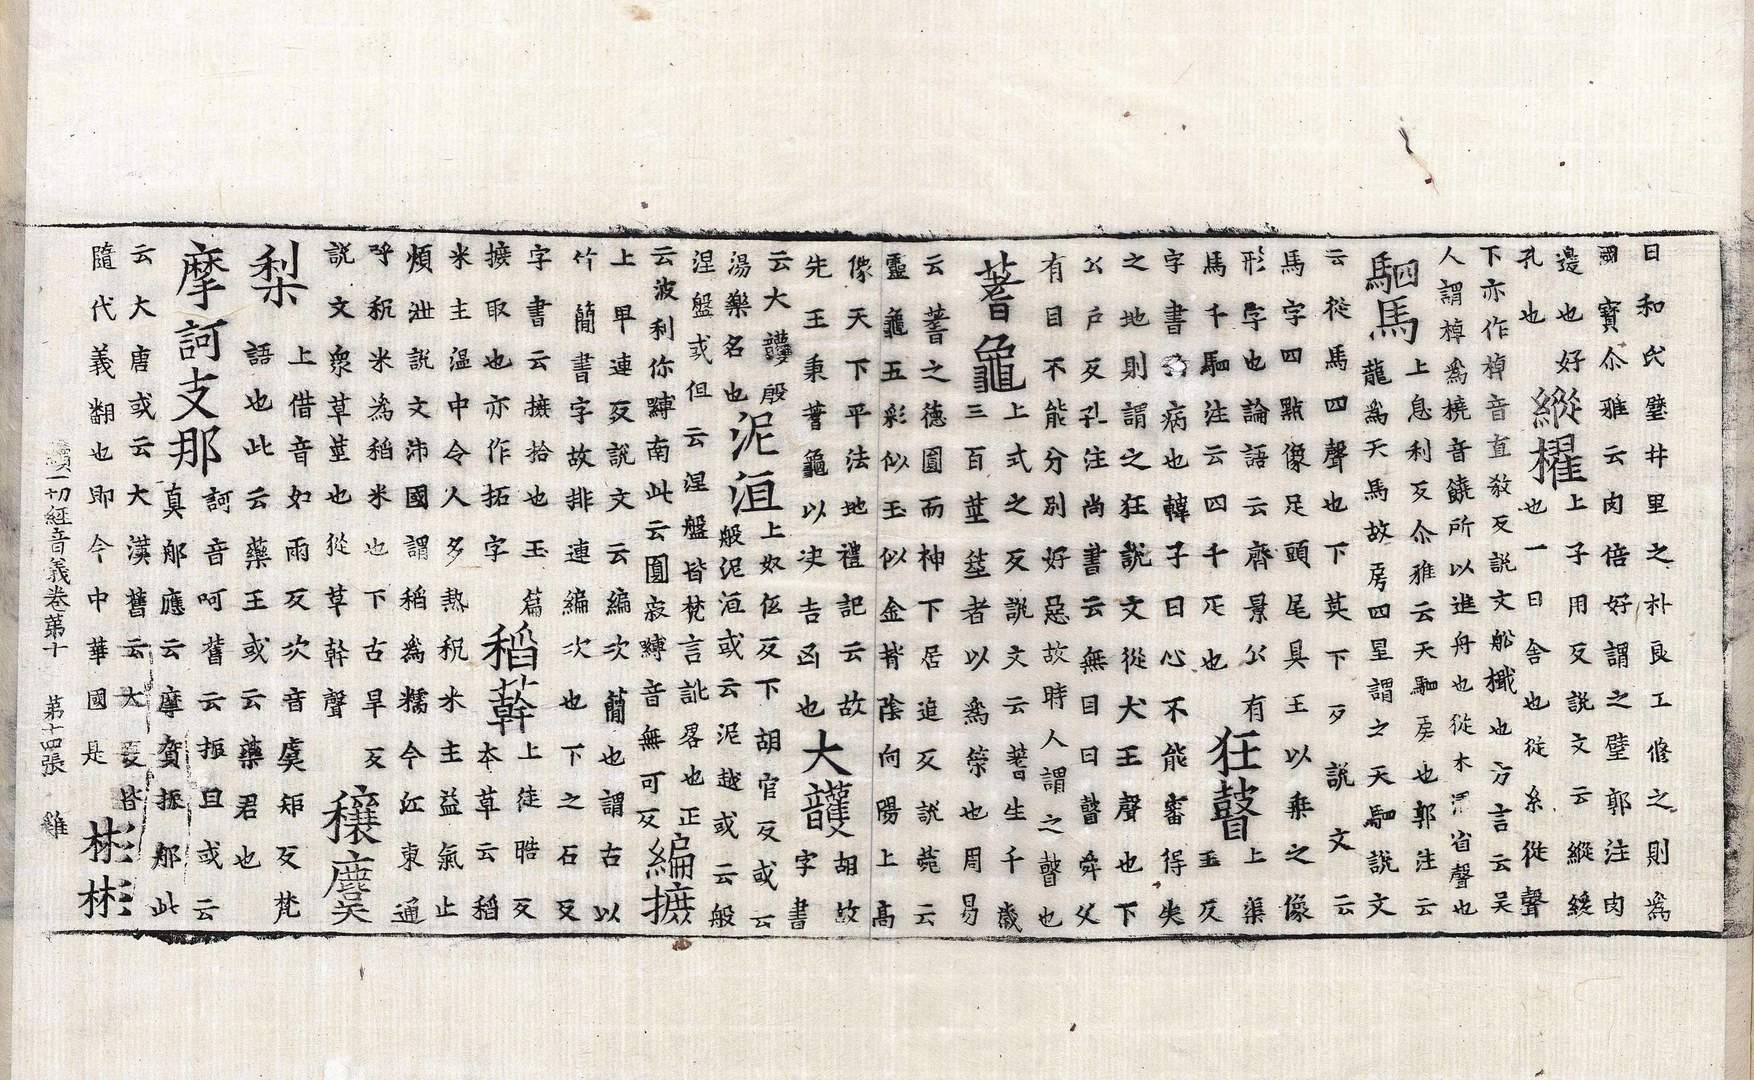 曰和氏璧井里之朴良工修之則爲
國寶尒雅云肉倍好謂之璧郭注肉
邊也好
孔也
縱櫂
上子用反說文云縱緩
也一曰舍也從糸從聲
下亦作棹音直教反說文船檝也方言云吴
人謂棹爲橈音饒所以進舟也從木濯省聲也
駟馬
上息利反尒雅云天駟房也郭注云
龍爲天馬故房四星謂之天駟說文
云從馬四聲也下莫下歹說文云
馬字四點像足頭尾具王以乗之像
形字也論語云齊景公有
馬千駟注云四千疋也
狂瞽
上渠
王反
字書云病也韓子曰心不能審得失
之地則謂之狂說文從犬王聲也下
公戶反孔注尚書云無目曰瞽舜父
有目不能分別好惡故時人謂之瞽也
蓍龜
上式之反說文云蓍生千歳
三百莖筮者以爲䇿也周易
云蓍之德圓而神下居追反說菀云
靈龜五彩似玉似金背陰向陽上高
像天下平法地禮記云故
先王秉蓍龜以决吉凶也
大護
胡故
字書
云大護殷
湯樂名也
泥洹
上奴伍反下胡官反或云
般泥洹或云泥越或云般
涅盤或但云涅盤皆梵言訛畧也正
云波利你縛南此云圓寂縛音無可反
編摭
上卑連反說文云編次簡也謂古以
竹簡書字故排連編次也下之石反
字書云摭拾也玉篇
摭取也亦作拓字
稻𦼮
上徒晧反
本草云稻
米主温中令人多熱秔米主益氣止
煩泄說文沛國謂稻爲糯今江東通
呼秔米爲稻米也下古旱反
說文衆草莖也從草幹聲
穰麌
梨
上借音如雨反次音虞矩反梵
語也此云藥王或云藥君也
摩訶支那
訶音呵舊云振旦或云
真那應云摩賀振那此
云大唐或云大漢舊云大夏皆
隨代義翻也即今中華國是
彬彬
續一切經音義卷第十 第十四張 雞